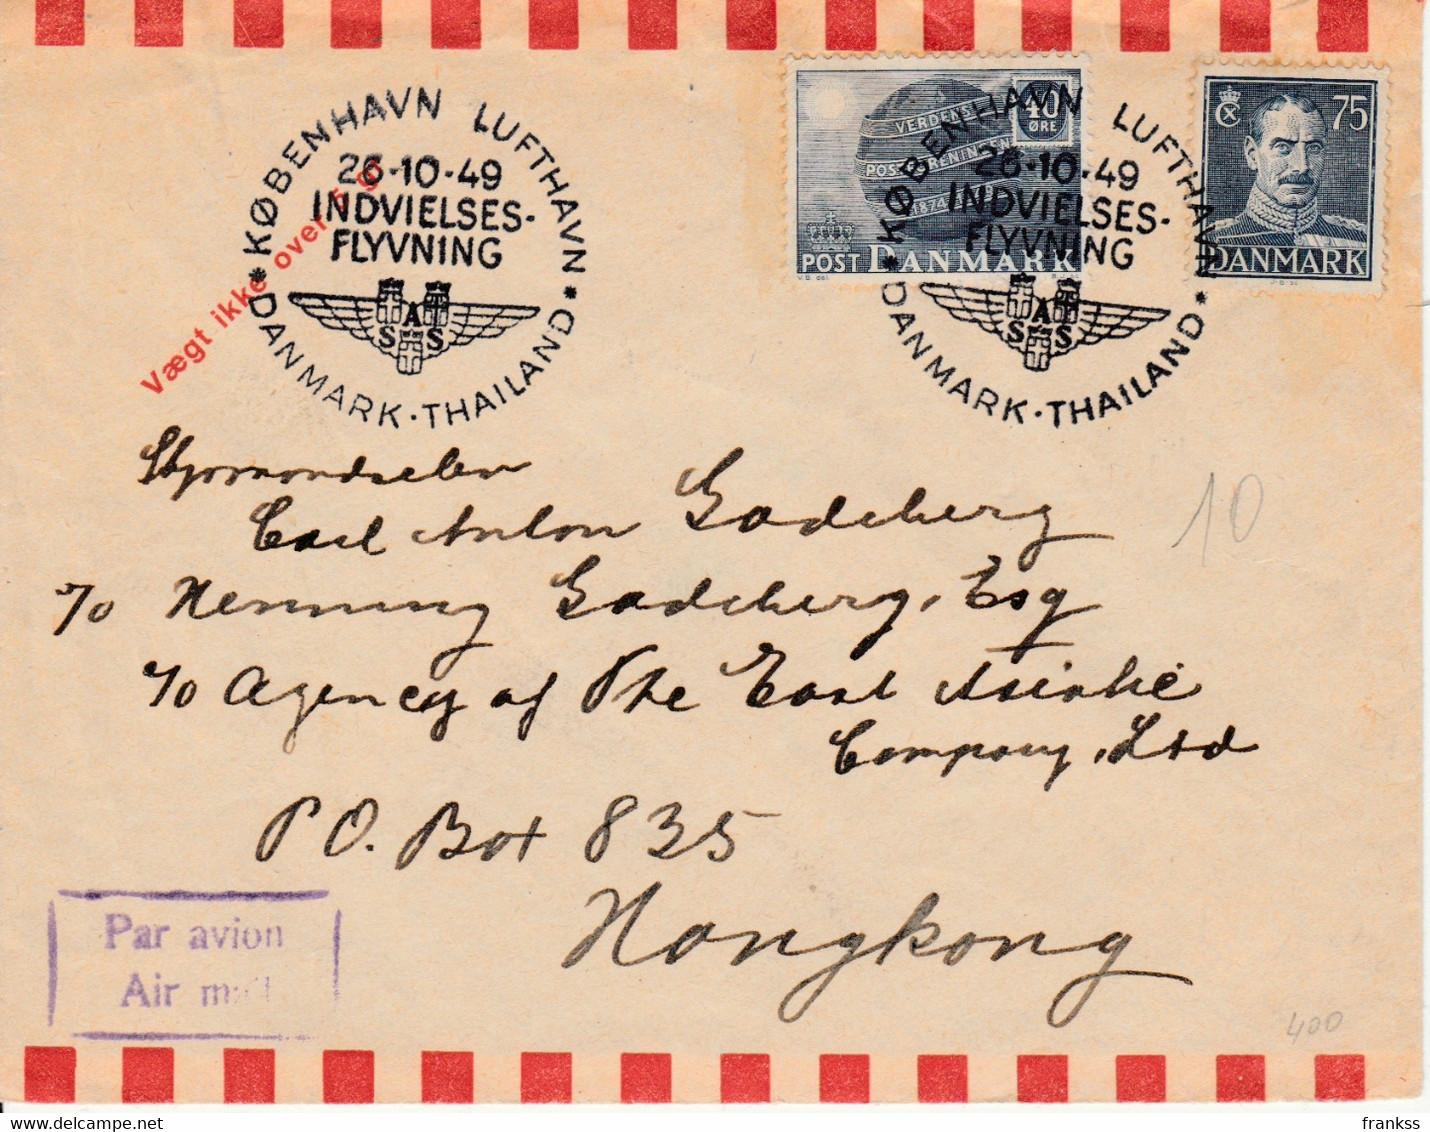 KØBENHAVN LUFTHAVN
26-10-49
INDVIELSES-
FLYVNING
SAS
* DANMARK · THAILAND *
Vægt ikke over 5 g
VERDENS
POSTFORENINGEN
1874
40
ØRE
POST DANMARK
KØBENHAVN LUFTHAVN
26-10-49
INDVIELSES-
FLYVNING
SAS
* DANMARK · THAILAND *
75
DANMARK
Carl Anton Godeberg
10
℅ Henning Godeberg, Esq
℅ Agency of The East Asiatic
Company, Ltd
P.O. Box 835
Hongkong
Par avion
Air mail
400
frankss